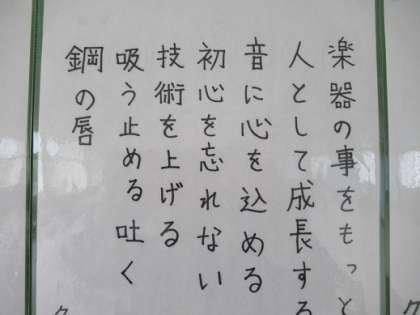 楽器の事をもっと
人として成長する
音に心を込める
初心を忘れない
技術を上げる
吸う止める吐く
鋼の唇